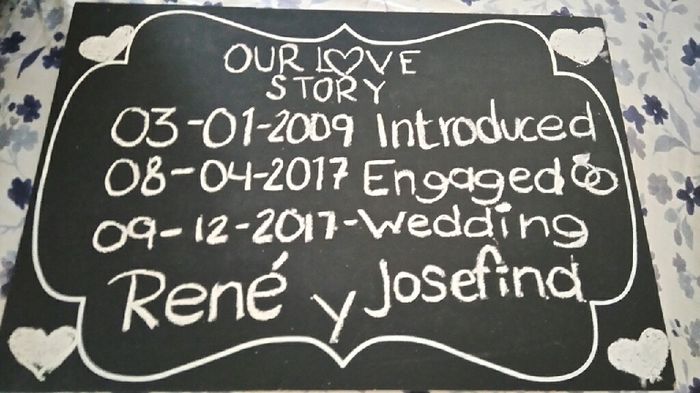 OUR LOVE
STORY
03-01-2009 Introduced
08-04-2017 Engaged
09-12-2017-Wedding
René y Josefina